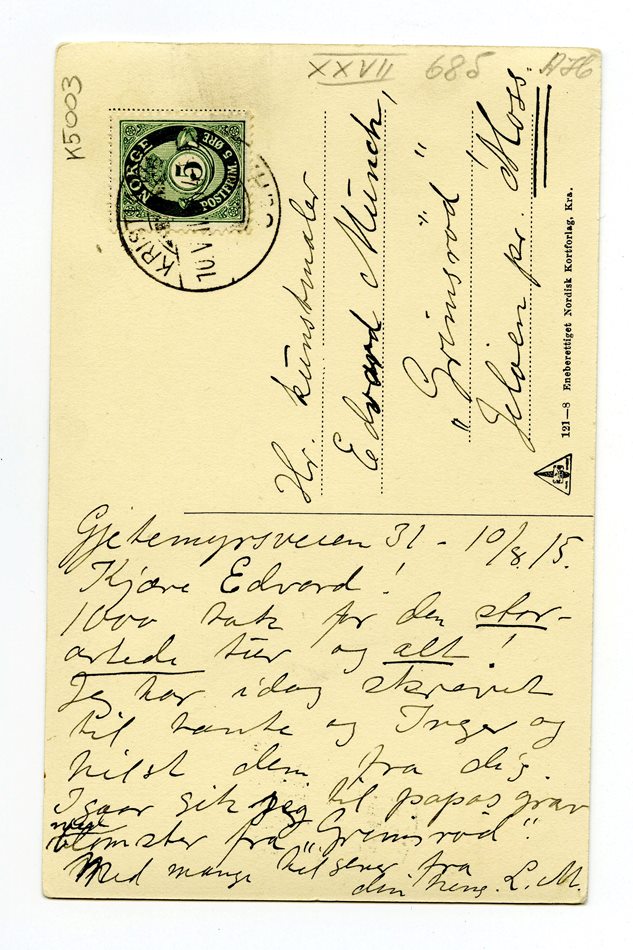 K5003
XXVII 685 AHb
NORGE
5
POSTFRIM. 5 ØRE
KRIST
10 V
Hr. kunstmaler
Edvard Munch,
"Grimsrød"
Jeløen pr. Moss.
121—8 Eneberettiget Nordisk Kortforlag, Kra.
Gjetemyrsveien 31 - 10/8 15.
Kjære Edvard!
1000 takk for den stor-
artede tur og alt!
Jeg har idag skrevet
til tante og Inger og
hilst dem fra dig.
Igaar gik jeg til papas grav
med
blomster fra "Grimsrød".
Med mange hilsener fra
din heng. L. M.